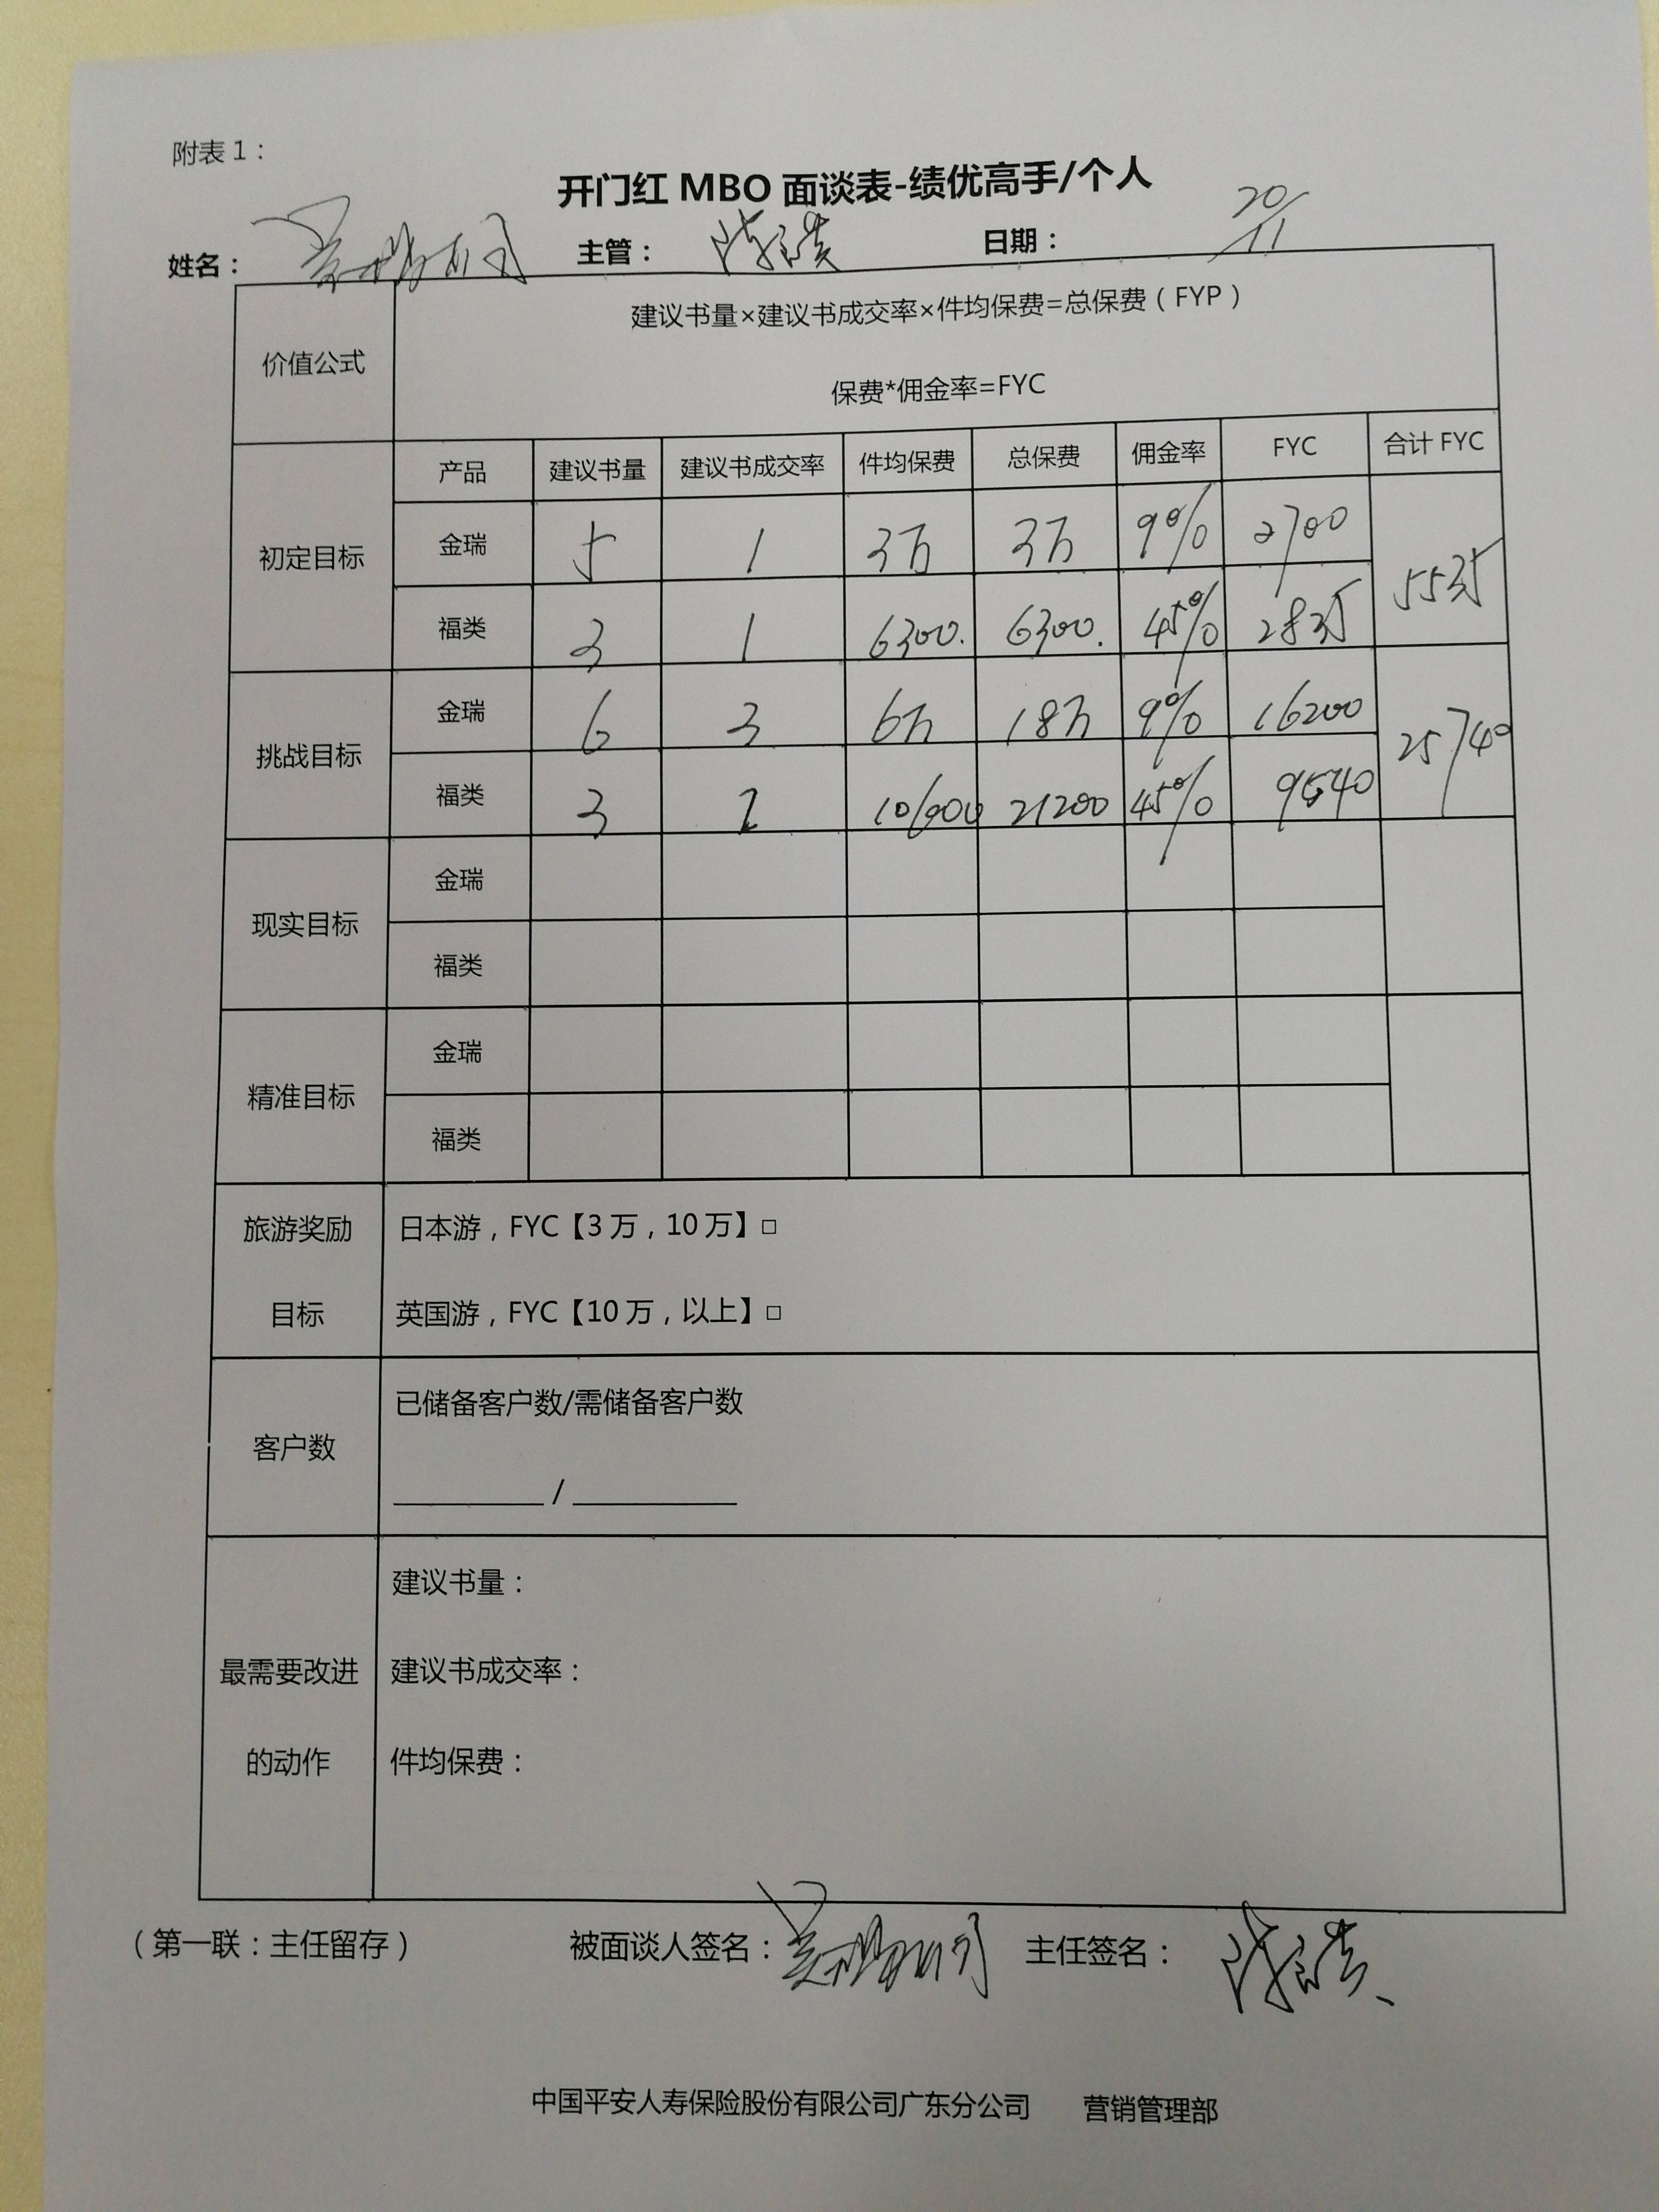 附表1：
开门红 MBO 面谈表-绩优高手/个人
姓名： 主管： 日期： 20/11
价值公式 建议书量×建议书成交率×件均保费=总保费（FYP）
保费*佣金率=FYC
产品 建议书量 建议书成交率 件均保费 总保费 佣金率 FYC 合计 FYC
初定目标 金瑞 5 1 3万 3万 9% 2700 5535
福类 3 1 6300. 6300. 45% 2835
挑战目标 金瑞 6 3 6万 18万 9% 16200 25740
福类 3 2 10600 21200 45% 9540
现实目标 金瑞
福类
精准目标 金瑞
福类
旅游奖励 日本游，FYC【3万，10万】□
目标 英国游，FYC【10万，以上】□
客户数 已储备客户数/需储备客户数
________ / ________
最需要改进 建议书量：
建议书成交率：
的动作 件均保费：
（第一联：主任留存） 被面谈人签名： 主任签名：
中国平安人寿保险股份有限公司广东分公司 营销管理部